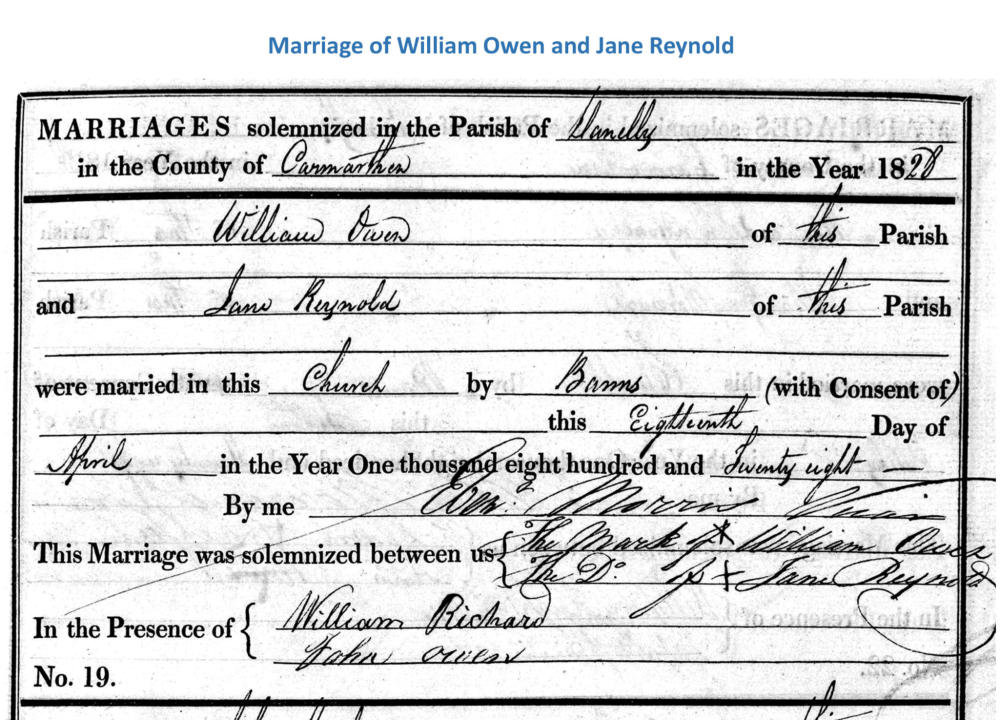 Marriage of William Owen and Jane Reynold
MARRIAGES solemnized in the Parish of Llanelly
in the County of Carmarthen in the Year 1828
William Owen of this Parish
and Jane Reynold of this Parish
were married in this Church by Banns (with Consent of)
this Eighteenth Day of
April in the Year One thousand eight hundred and Twenty eight
By me Morris
This Marriage was solemnized between us { The Mark of X William Owen
The Do of X Jane Reynold
In the Presence of { William Richard
John Owen
No. 19.